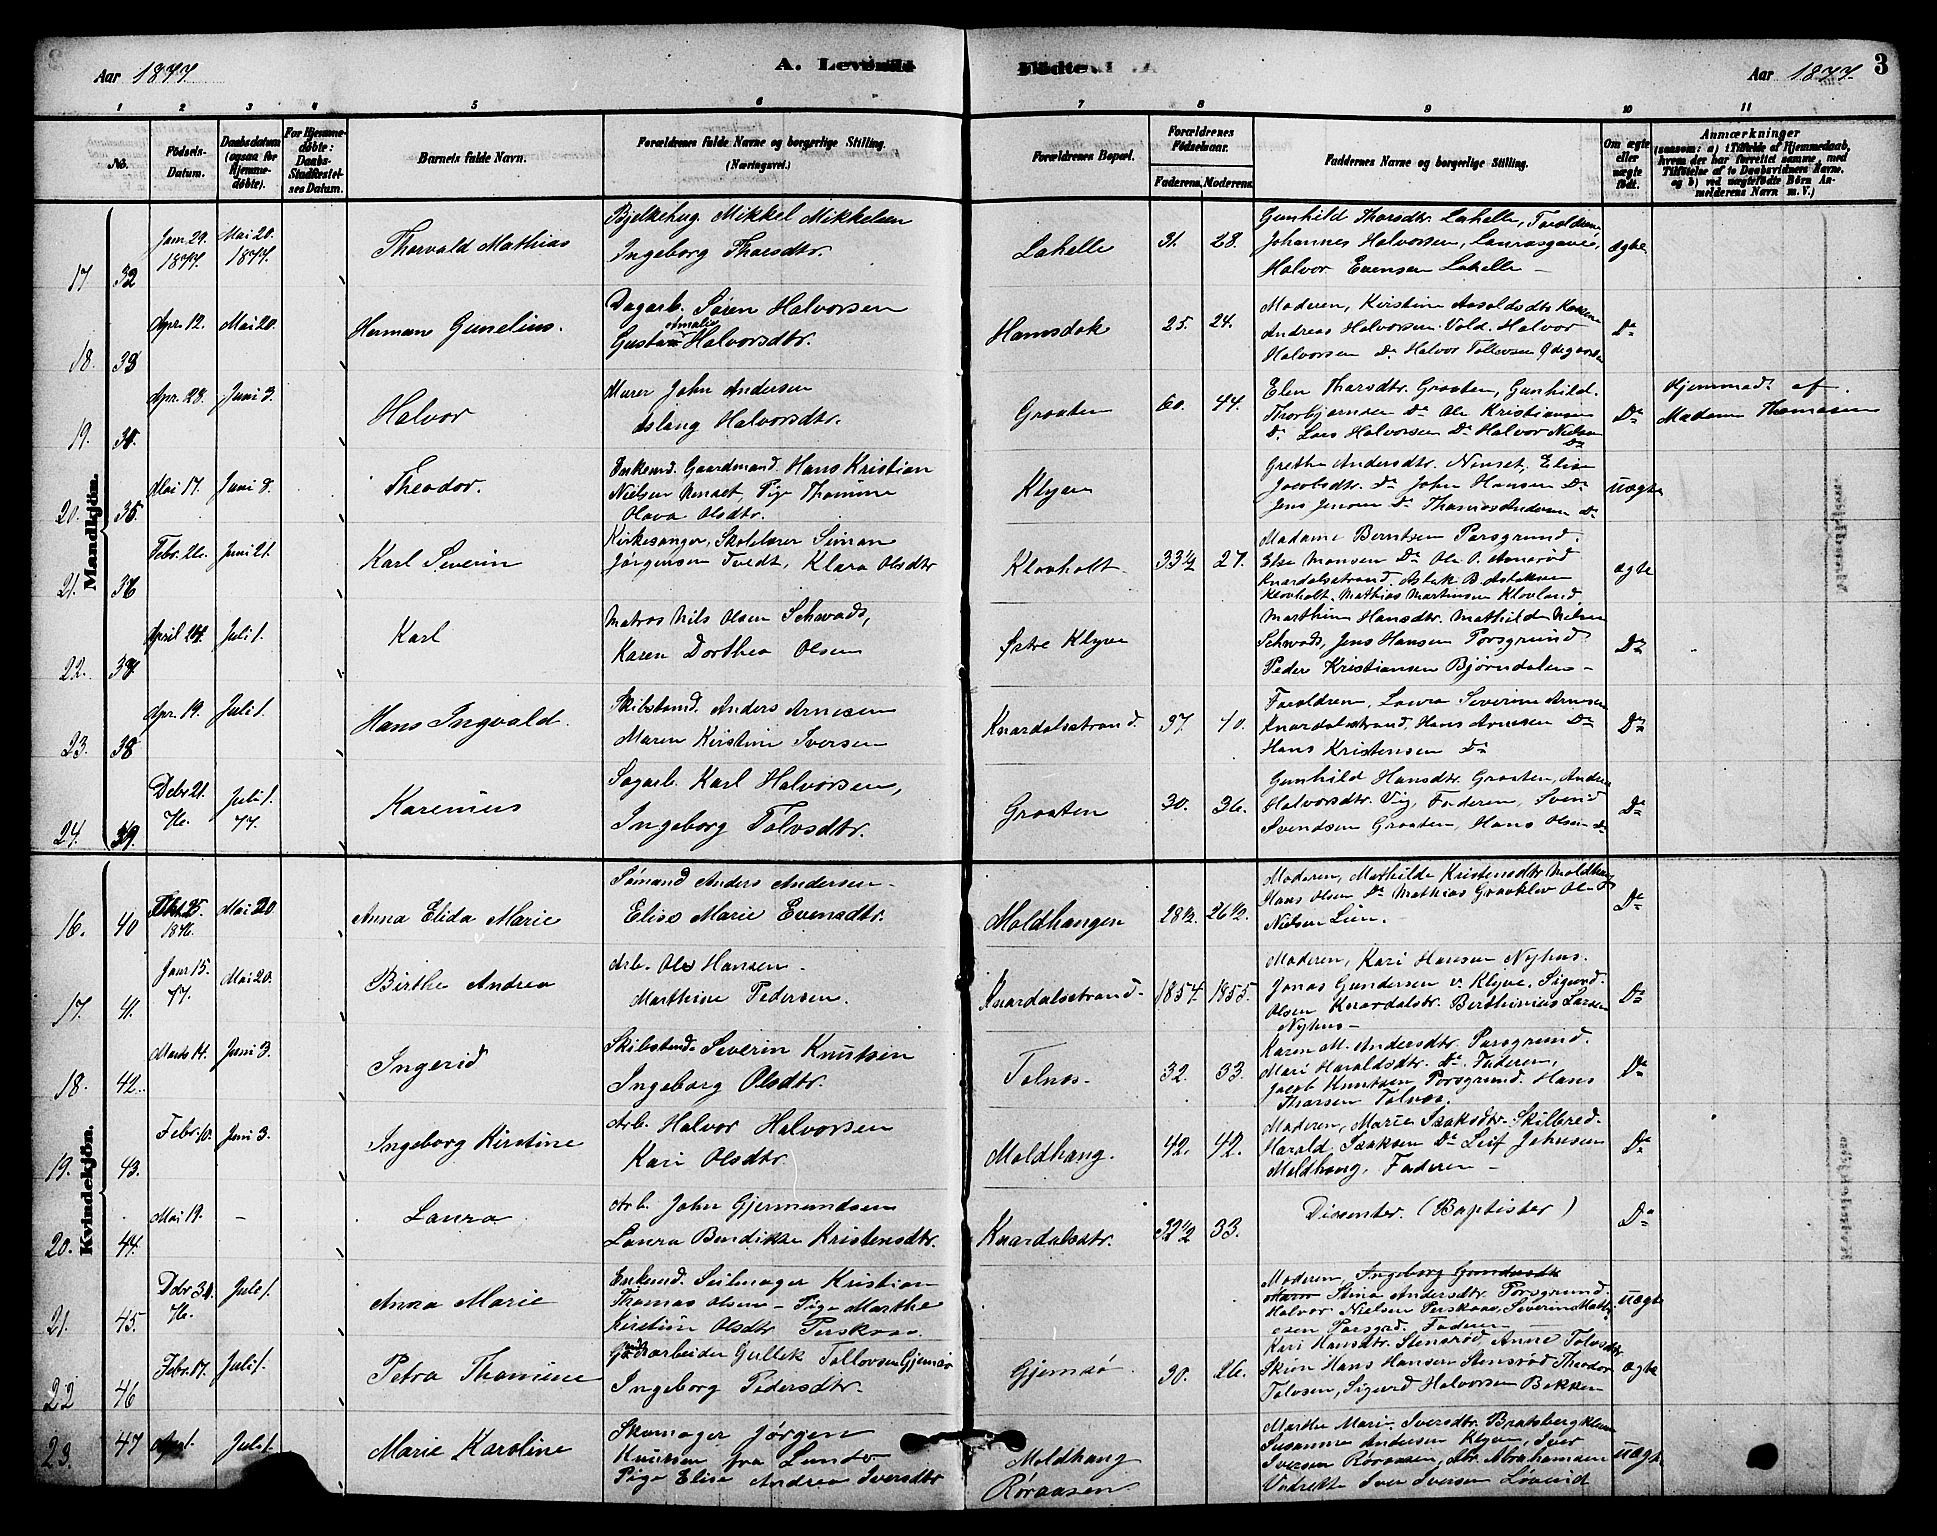 Aar 1877. A. Levende Fødte. Aar 1877. 3
1 2 3 4 5 6 7 8 9 10 11
No. Fødsels-Datum. Daabsdatum (ogsaa for Hjemmedøbte). For Hjemmedøbte: Daabs-Stadfæstelses Datum. Barnets fulde Navn. Forældrenes fulde Navne og borgerlige Stilling. (Næringsvei.) Forældrenes Bopæl. Forældrenes Fødselsaar. Faderens. Moderens. Faddernes Navne og borgerlige Stilling. Om ægte eller uægte født. Anmærkninger (saasom: a) i Tilfælde af Hjemmedaab, hvem der har forrettet samme, med Tilføielse af to Daabsvidners Navne, og b) ved uægtefødte Børn Anmelderens Navn m. V.)
Mandkjön.
17. 32 Jan. 29. 1877. Mai 20. 1877. Thorvald Mathias
Bjelkehug. Mikkel Mikkelsen
Ingeborg Thorsdtr.
Lahelle 31. 28.
Gunhild Thorsdtr. Lahelle, Forældrene,
Johannes Halvorsen,
Halvor Evensen Lahelle –
ægte
18. 33 Apr. 12. Mai 20. Herman Gunelius.
Dagarb. Søren Halvorsen
Amalie
Halvorsdtr.
25. 24.
Moderen, Kirstine
Andreas Halvorsen Vold. Halvor
Halvorsen Do Halvor Tollevsen Ødegaarden
Do
19. 34. Apr. 23. Juni 3. Halvor
Murer John Andersen
Aslaug Halvorsdtr.
Graaten 60. 44.
Elen Thorsdtr. Graaten, Gunhild
Thorbjørnsen Do Ole Kristiansen
Do Lars Halvorsen Do Halvor Nielsen
Do
Do
Hjemmed. af
Madam Thomesen
20. 35 Mai 17. Juni 8. Theodor.
Enkemd. Gaardmand. Hans Kristian
Nielsen Nenset, Pige Thomine
Olava Olsdtr.
Klyve
Grethe Andersdtr. Nenset, Elise
Jacobsdtr. Do John Hansen Do
Jens Jensen Do Thomas Andersen Do
uægte
21. 36 Febr. 26. Juni 21. Karl Severin
Kirkesanger, Skolelærer Simon
Jørgensen Tvedt, Klara Olsdtr
Klovholt. 33½ 27.
Madame Berntsen Porsgrund.
Else Monsen Do Ole O.
Knardalsstrand. Aslak B. Aslaksen
Klovholt. Mathias Martinsen Klovland.
ægte
22. 37 April 24. Juli 1. Karl
Matros Nils Olsen Schwads,
Karen Dorthea Olsen
Østre Klyve
Marthine Hansdtr. Mathilde Nilsen
Schwads, Jens Hansen Porsgrund
Peder Kristiansen Bjørndalen –
Do
23. 38 Apr. 19. Juli 1. Hans Ingvald.
Skibstømd. Anders Arnesen
Maren Kirstine Iversen
Knardalsstrand 37. 40.
Forældrene, Laura Severine Arnesen
Knardalsstrand, Hans Arnesen Do
Hans Kristensen Do
Do
24. 39. Debr 21. 76. Juli 1. 77. Karenius
Sagarb. Karl Halvorsen,
Ingeborg Tolvsdtr.
Graaten 30. 36.
Gunhild Hansdtr. Graaten, Anders
Halvorsdtr. Vig, Faderen, Svend
Svendsen Graaten, Hans Olsen Do
Do
Kvindekjön.
16. 40 25. 1876. Mai 20. Anna Elida Marie
Sömand Anders Andersen
Elise Marie Evensdtr.
Moldhaugen 28½. 26½.
Moderen, Mathilde Kristensdtr Moldhaug
Hans Olsen Do Mathias Graaklev Ole
Nielsen Lien.
Do
17. 41. Januar 15. 77. Mai 20. Birthe Andrea
Arb. Ole Hansen.
Marthine Pedersen.
Knardalsstrand. 1854. 1855.
Moderen, Kari Hansen Nyhus.
Jonas Gundersen v. Klyve, Sigurd
Olsen Knardalstr. Berthinius Larsen
Nyhus –
Do
18. 42. Marts 14. Juni 3. Ingerid
Skibstømd. Severin Knutsen
Ingeborg Olsdtr.
Tolnes. 32. 33.
Karen M. Andersdtr. Porsgrund.
Mari Haraldsdtr. Do. Faderen,
Jacob Knutsen Porsgrund. Hans
Thorsen Tolnes.
Do
19. 43. Febr. 10. Juni 3. Ingeborg Kirstine
Arb. Halvor Halvorsen
Kari Olsdtr.
Moldhaug. 42. 42.
Moderen, Marie Isaksdtr. Skilbred
Harald Isaksen Do Leif Johnsen
Moldhaug, Faderen –
Do
20. 44. Mai 19. – Laura
Arb. John Gjermundsen
Laura Bendikke Kristensdtr.
Knardalsstr. 32½ 33.
Dissenter. (Baptister)
Do
21. 45. Debr 30. 76. Juli 1. Anna Marie
Enkemd. Seilmager Kristian
Thomas Olsen – Pige Marthe
Kirstine Olsdtr
Moderen, Ingeborg Gundersdtr
Stina Andersdtr. Porsgrund.
Halvor Nielsen
Porsgrd. Faderen –
uægte
22 46 Febr. 17. Juli 1. Petra Thomine
Gaardarbeider Gullek Tollovsen Gjemsø
Ingeborg Pedersdtr.
Gjemsø 30. 26.
Kari Hansdtr. Stensrød Anne Tolvsdtr
Skien Hans Hansen Stensrød Theodor
Tolvsen, Sigurd Halvorsen Bakken
ægte
23. 47 Juli 1. Marie Karoline
Skomager Jørgen
Knutsen fra Lunde
Pige Elise Andrea Iversdtr
Moldhaug
Røraasen
Marthe Marie Iversdtr. Bratsbergkleven
Susanne Andersen Klyve, Iver
Iversen Røraasen, Abr. Abrahamsen
Iver Iversen
uægte